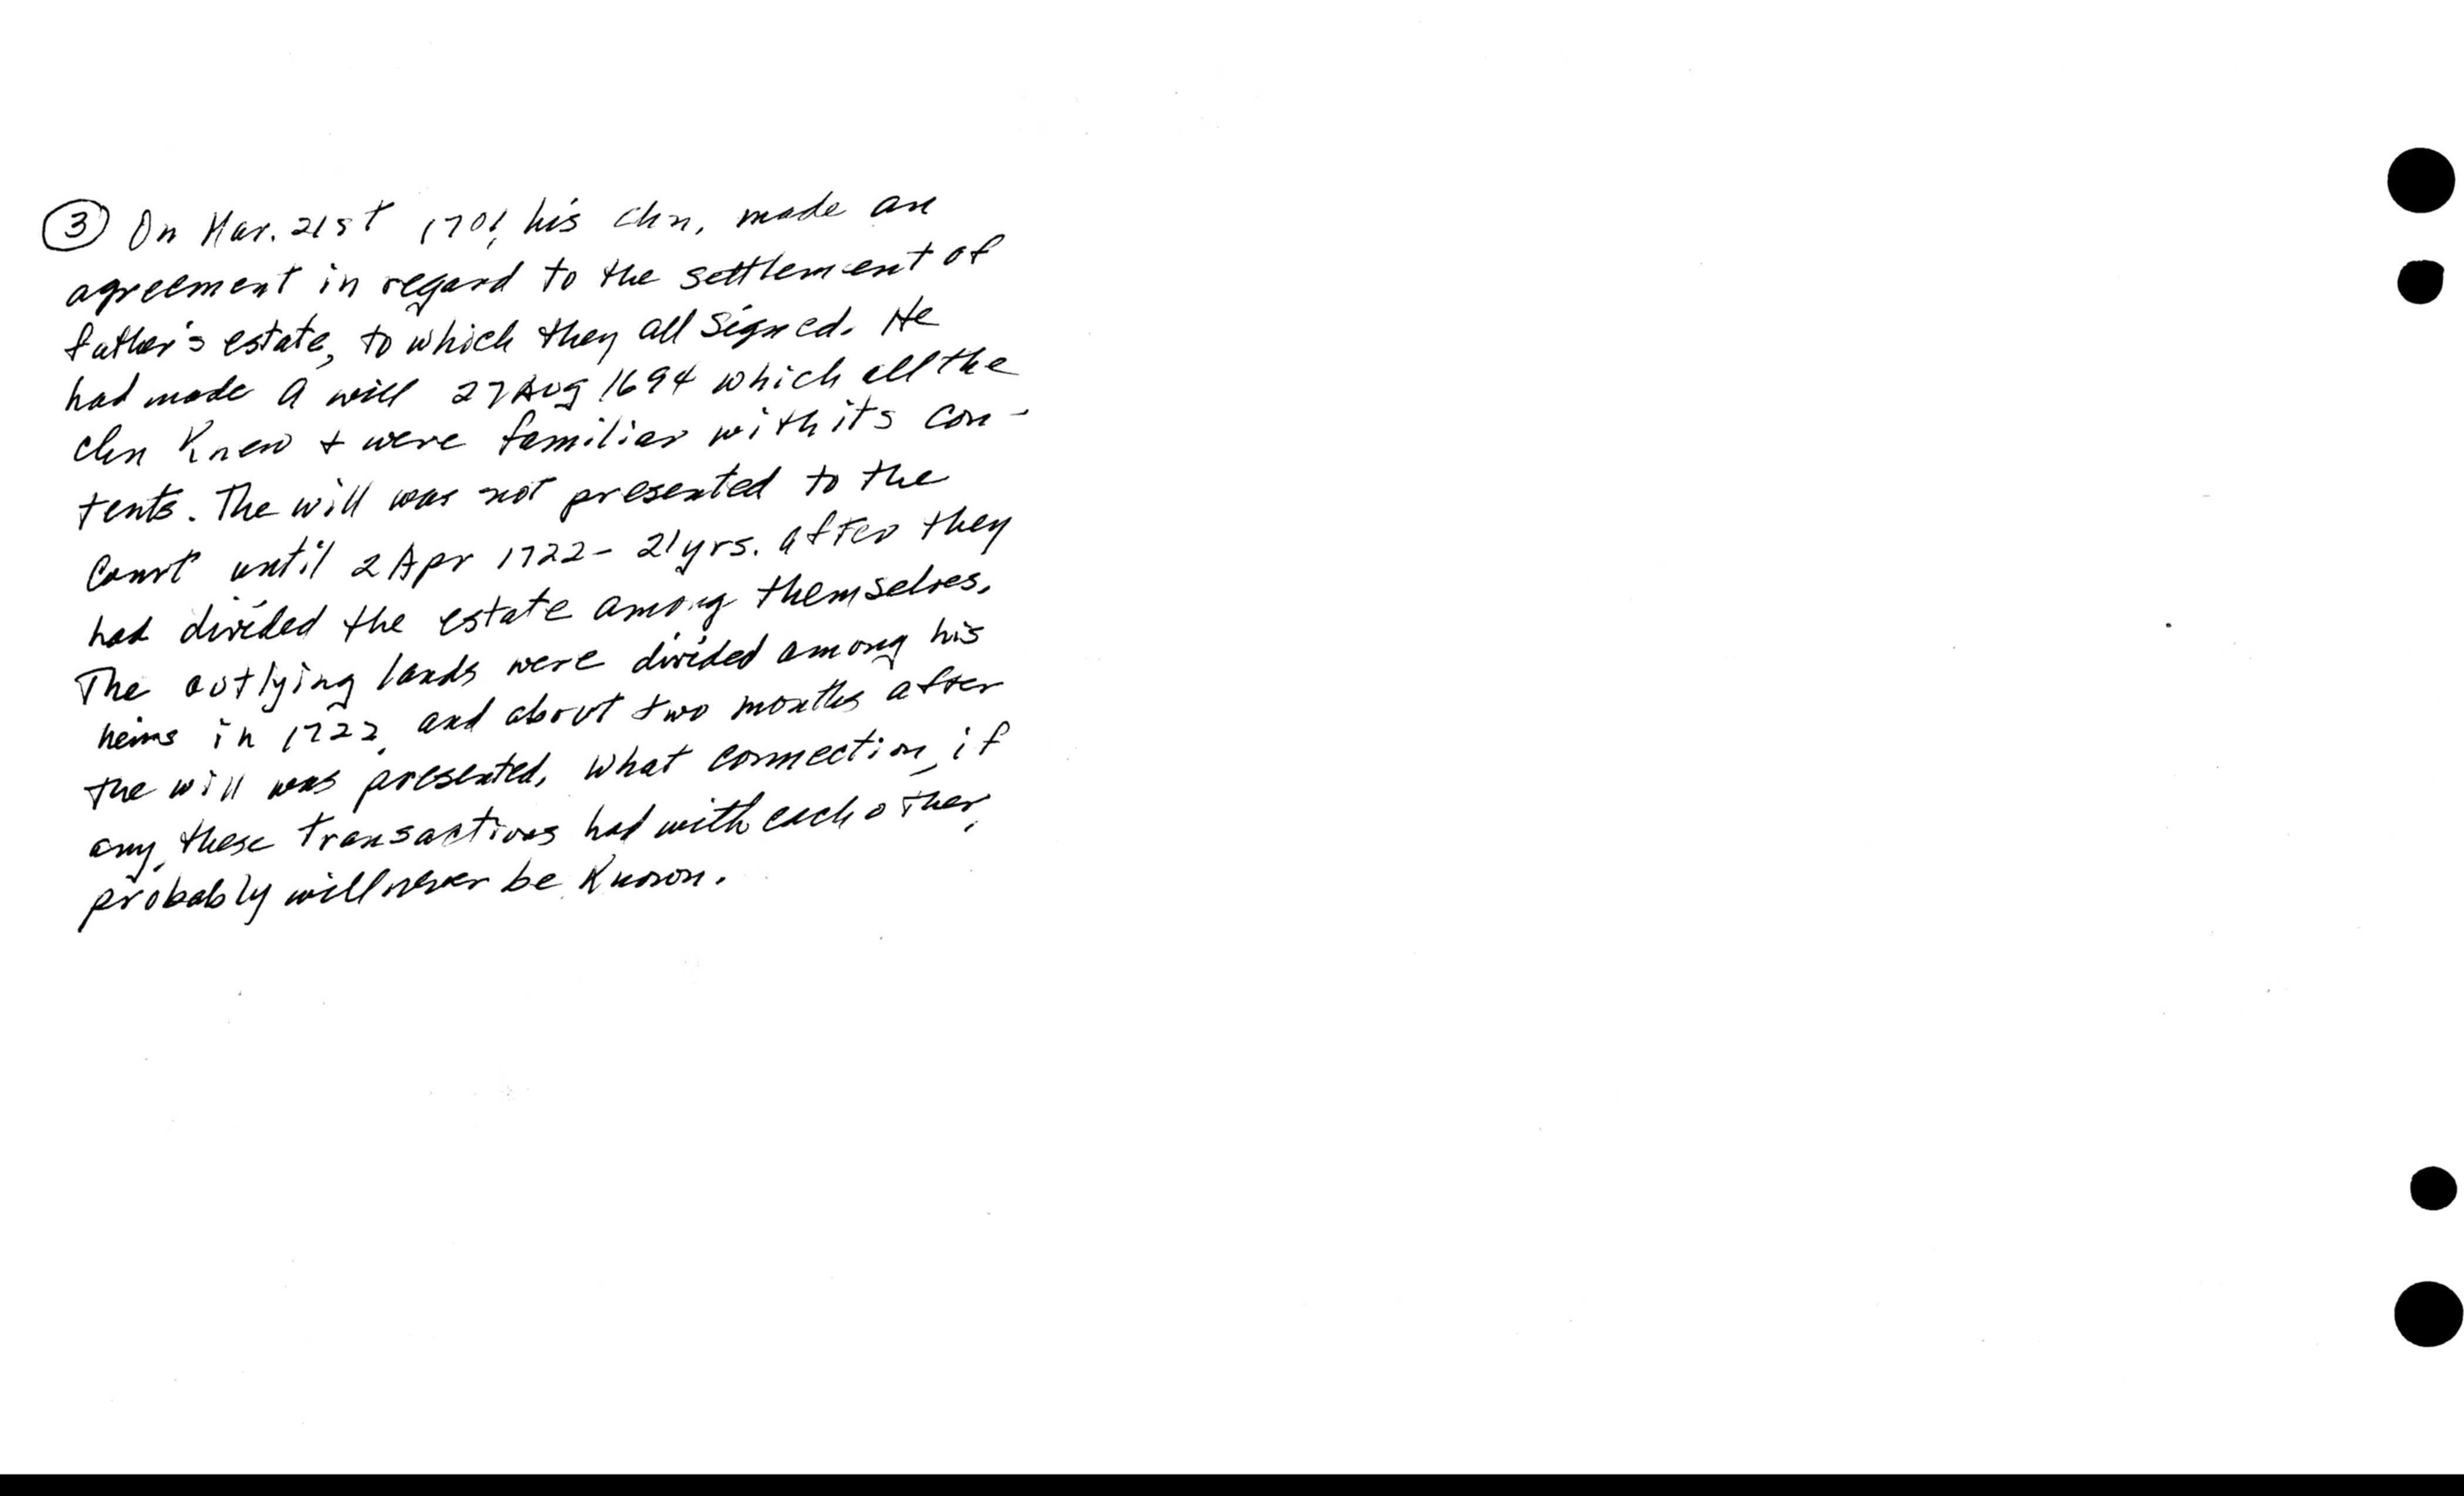 ③ On Mar. 21st 1701, his chn, made an
agreement in regard to the settlement of
father's estate, to which they all signed. He
had made a will 27 Aug 1694 which all the
chn knew + were familiar with its con-
tents. The will was not presented to the
Court until 2 Apr 1722 - 21 yrs. after they
had divided the estate among themselves.
The outlying lands were divided among his
heirs in 1722, and about two months after
the will was presented. What connection, if
any, these transactions had with each other,
probably will never be known.